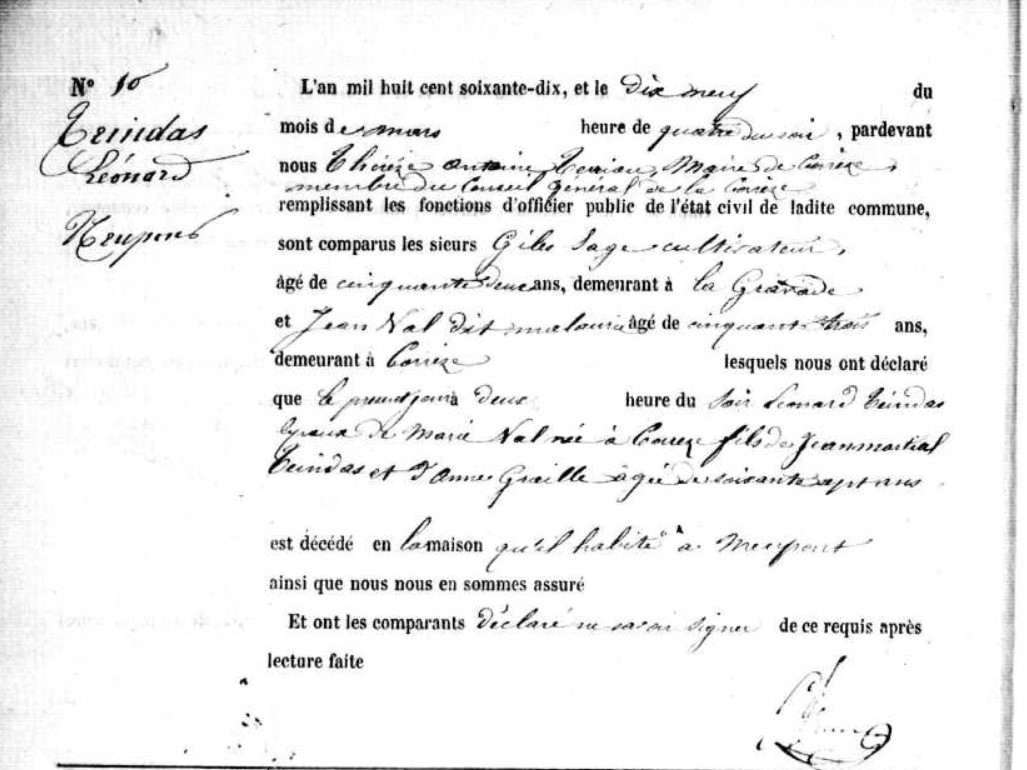 N° 10
Teindas
Léonard
Meupont
L'an mil huit cent soixante-dix, et le Dix neuf du
mois de mars heure de quatre du soir, pardevant
nous Antoine Maire de Corrèze,
membre du Conseil général de la Corrèze
remplissant les fonctions d'officier public de l'état civil de ladite commune,
sont comparus les sieurs Giles Sage cultivateur,
âgé de cinquante deux ans, demeurant à la Gravade
et Jean Nal dit malaurie âgé de cinquante trois ans,
demeurant à Corrèze lesquels nous ont déclaré
que le present jour à deux heure du soir Leonard Teindas
époux de Marie Nal née à Correze fils de Jean martial
Teindas et d'Anne Graille agée de soixante sept ans
est décédé en la maison qu'il habité à Meupont
ainsi que nous nous en sommes assuré
Et ont les comparants déclaré ne savoir signer de ce requis après
lecture faite